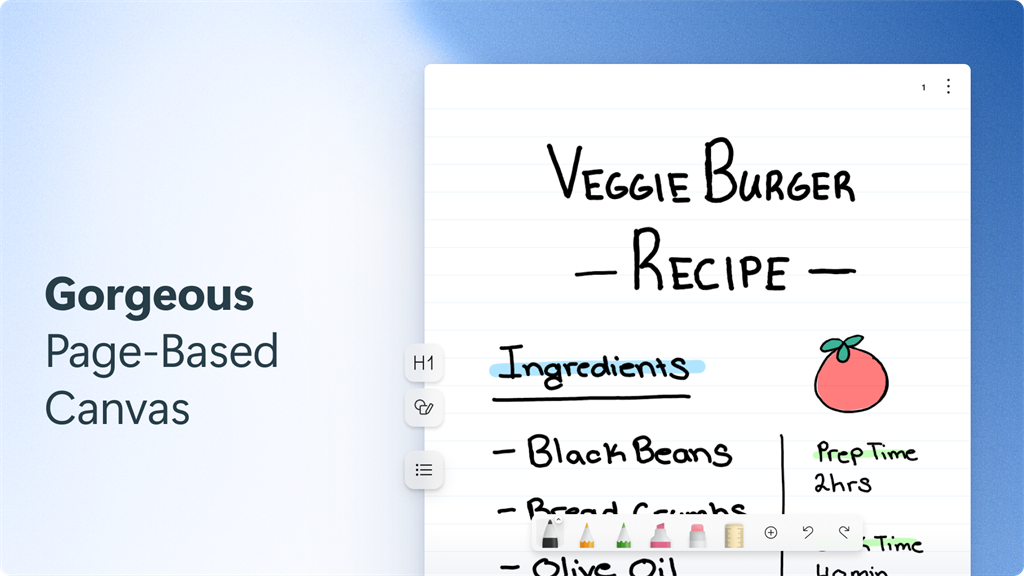 Gorgeous
Page-Based
Canvas
1
VEGGIE BURGER
— RECIPE —
H1
Ingredients
- Black Beans
Prep Time
2hrs
- Bread Crumbs
Time
- Olive Oil
40 min